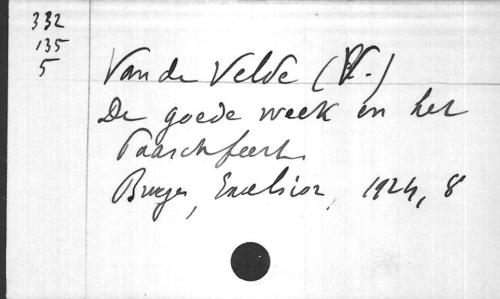 332
135
5
Van de Velde (V.)
De goede week en het
Paaschfeest.
Bruges, Excelsior, 1924, 8